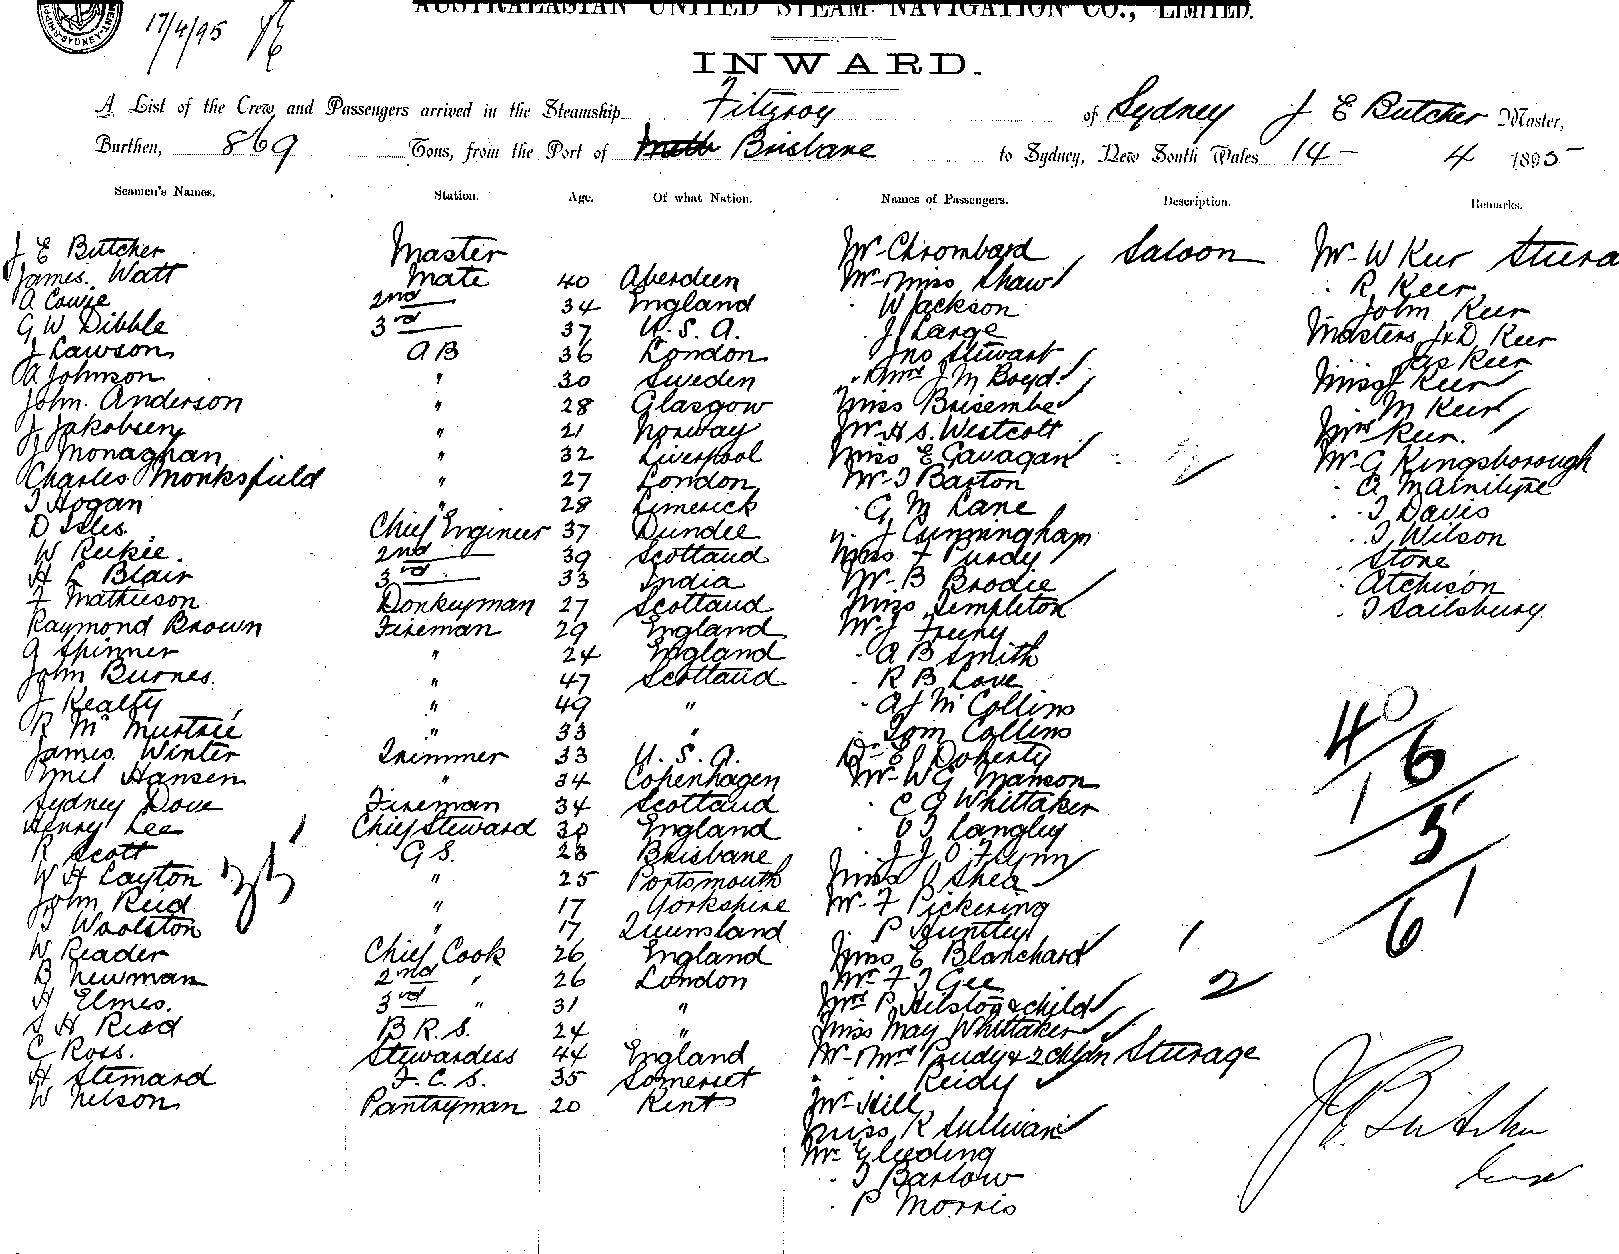 17/4/95
AUSTRALASIAN UNITED STEAM NAVIGATION CO., LIMITED.
INWARD.
A List of the Crew and Passengers arrived in the Steamship Fitzroy of Sydney J E Butcher Master,
Burthen, 869 Tons, from the Port of Brisbane to Sydney, New South Wales 14 - 4 1895
Seamen's Names. Station. Age. Of what Nation. Names of Passengers. Description. Remarks.
J E Butcher Master Mr Chrombard Saloon Mr W Keer
James Watt Mate 40 Aberdeen Mr & Miss Shaw R Keer
A Cowie 2nd 34 England W Jackson John Keer
G W Dibble 3rd 37 U.S.A. J Large Masters J & D Keer
J Lawson A B 36 London Jno Stewart Keer
A Johnson " 30 Sweden Mrs J M Boyd Miss J Keer
John Anderson " 28 Glasgow Miss M Keer
J Jakobsen " 21 Norway Mr H S. Westcott Mrs Keer
J Monaghan " 32 Liverpool Miss E Gavagan Mr G Kingsborough
Charles Monksfield " 27 London Mr T Barton
T Hogan " 28 Limerick G M Lane T Davis
D Isles Chief Engineer 37 Dundee J Cunningham T Wilson
W Reekie 2nd 39 Scotland Miss F Purdy Stone
H L Blair 3rd 33 India Mr B Brodie Atchison
F Mathieson Donkeyman 27 Scotland Miss Templeton T Sailsbury
Raymond Brown Fireman 29 England Mr J
A Spinner " 24 England A B Smith
John Burnes " 47 Scotland R B Love
J Kealty " 49 " A J McCollins
R McMurtrie " 33 " Tom Collins
James Winter Trimmer 33 U.S.A. Dr E J Doherty
Emil Hansen " 34 Copenhagen Mr W G Manson
Sydney Dove Fireman 34 Scotland C G Whittaker
Henry Lee Chief Steward England Langley
R Scott G S. 23 Brisbane J J O'Flynn
W H Layton " 25 Portsmouth Miss O'Shea
John Reid " 17 Yorkshire Mr F Pickering
Woolston " 17 Queensland P Huntley
W Reader Chief Cook 26 England Miss E Blanchard 1
B Newman 2nd " 26 London Mr F J Gee 2
H Elmes 3rd " 31 " Mrs P & child
H Reid B.R.S. 24 " Miss May Whittaker
C Ross Stewardess 44 England Mr & Mrs & 2 chldn
H Stemard F.C.S. 35 Somerset Reidy
W Nelson Pantryman 20 Kent Mr Hill
Miss K Sullivan
Mr Gleeding
T Barlow
P Morris
40
6
1
5
6 1
35
J E Butcher